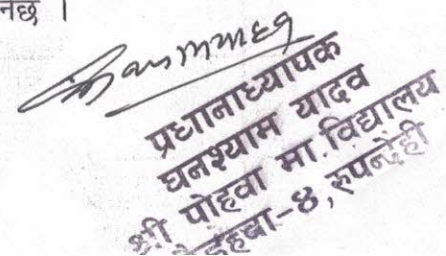 नछ ।
प्रधानाध्यापक
घनश्याम यादव
श्री पोहवा मा. विद्यालय
-४, रुपन्देही